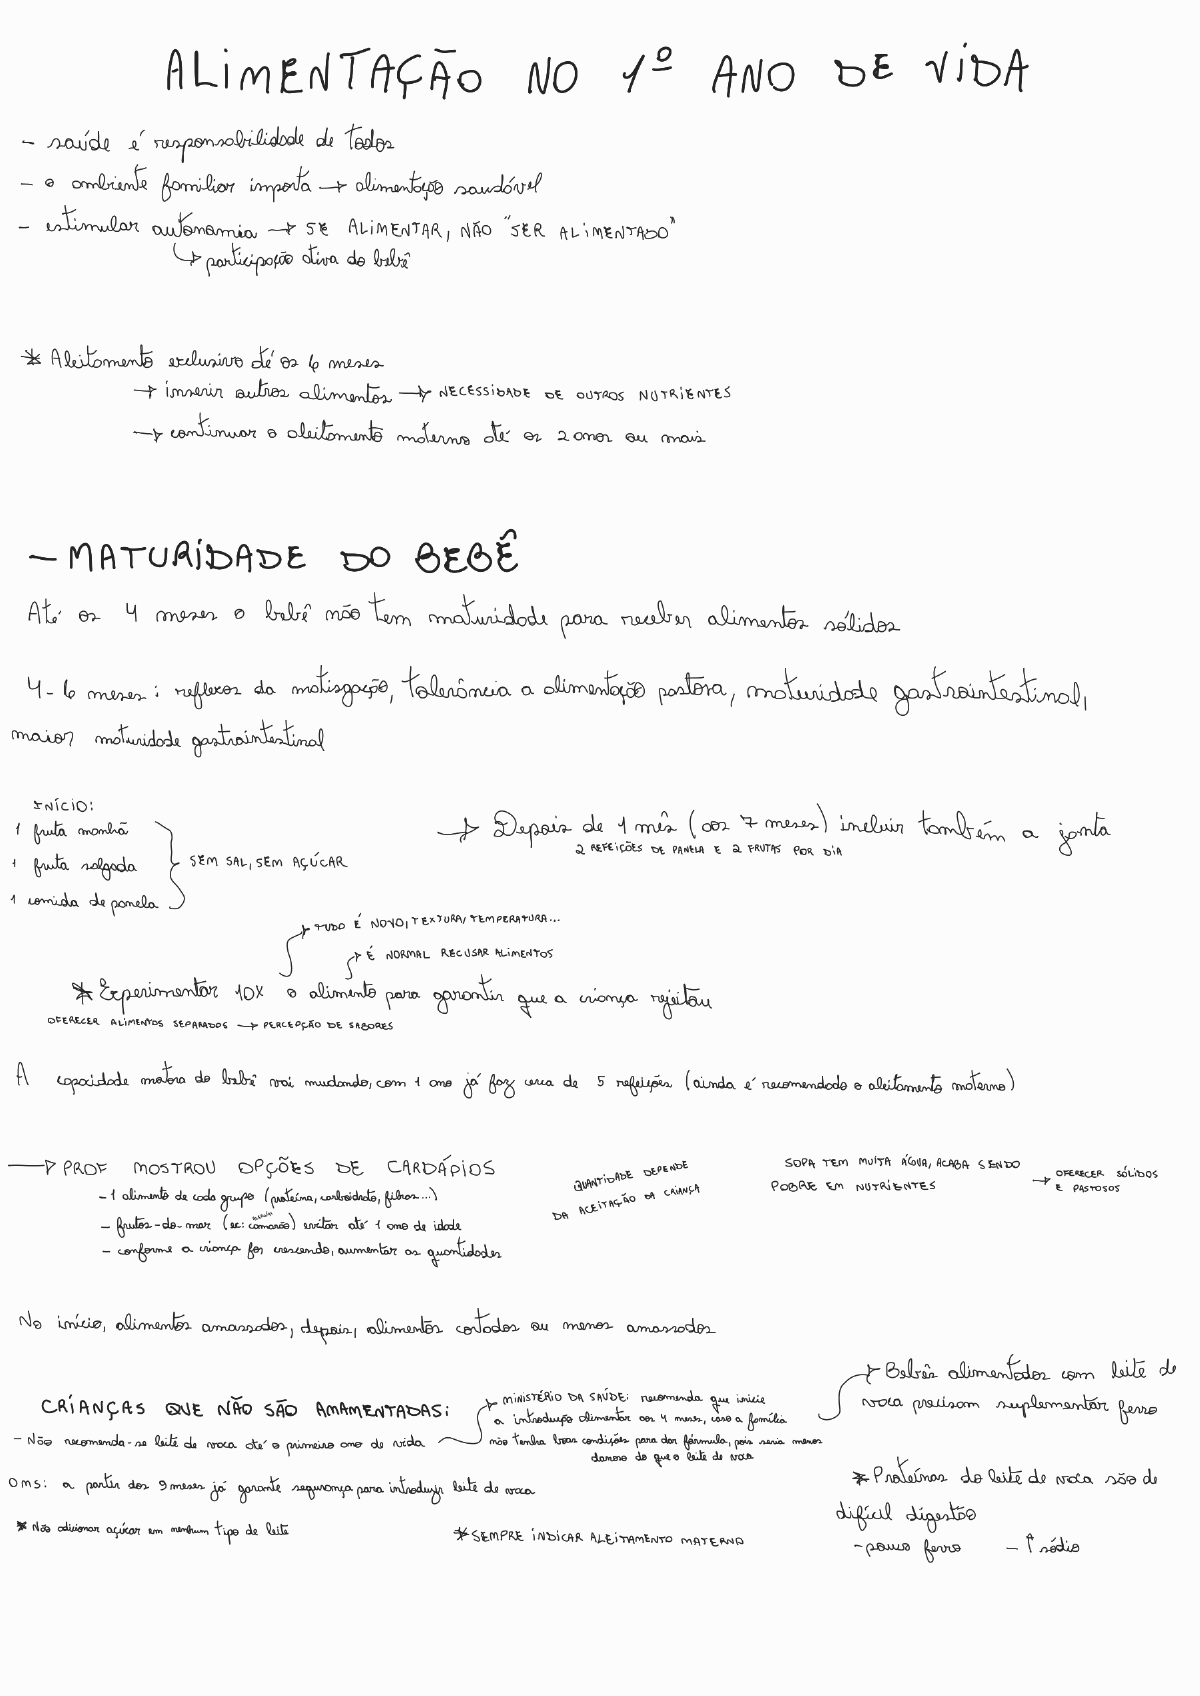 ALIMENTAÇÃO NO 1º ANO DE VIDA
- saúde é responsabilidade de todos
- o ambiente familiar importa → alimentação saudável
- estimular autonomia → SE ALIMENTAR, NÃO "SER ALIMENTADO"
↳ participação ativa do bebê
* Aleitamento exclusivo até os 6 meses
→ inserir outros alimentos → NECESSIDADE DE OUTROS NUTRIENTES
→ continuar o aleitamento materno até os 2 anos ou mais
- MATURIDADE DO BEBÊ
Até os 4 meses o bebê não tem maturidade para receber alimentos sólidos
4-6 meses: reflexos da matisgação, tolerância a alimentação pastosa, maturidade gastrointestinal,
maior maturidade gastrointestinal
INÍCIO:
1 fruta manhã
1 fruta salgada
1 comida de panela
SEM SAL, SEM AÇÚCAR
→ Depois de 1 mês (aos 7 meses) incluir também a janta
2 REFEIÇÕES DE PANELA E 2 FRUTAS POR DIA
→ TUDO É NOVO, TEXTURA, TEMPERATURA...
→ É NORMAL RECUSAR ALIMENTOS
* Experimentar 10X o alimento para garantir que a criança rejeitou
OFERECER ALIMENTOS SEPARADOS → PERCEPÇÃO DE SABORES
A capacidade motora do bebê vai mudando, com 1 ano já faz cerca de 5 refeições (ainda é recomendado o aleitamento materno)
→ PROF MOSTROU OPÇÕES DE CARDÁPIOS
- 1 alimento de cada grupo (proteína, carboidrato, fibras...)
- frutos-do-mar (ex: camarão) evitar até 1 ano de idade
- conforme a criança for crescendo, aumentar as quantidades
QUANTIDADE DEPENDE
DA ACEITAÇÃO DA CRIANÇA
SOPA TEM MUITA ÁGUA, ACABA SENDO
POBRE EM NUTRIENTES
→ OFERECER SÓLIDOS
E PASTOSOS
No início, alimentos amassados, depois, alimentos cortados ou menos amassados
CRIANÇAS QUE NÃO SÃO AMAMENTADAS:
- Não recomenda-se leite de vaca até o primeiro ano de vida
→ MINISTÉRIO DA SAÚDE: recomenda que inicie
a introdução alimentar aos 4 meses, caso a família
não tenha boas condições para dar fórmula, pois seria menos
danoso do que o leite de vaca
→ Bebês alimentados com leite de
vaca precisam suplementar ferro
OMS: a partir dos 9 meses já garante segurança para introduzir leite de vaca
* Não adicionar açúcar em nenhum tipo de leite
* SEMPRE INDICAR ALEITAMENTO MATERNO
* Proteínas do leite de vaca são de
difícil digestão
- pouco ferro - ↑ sódio